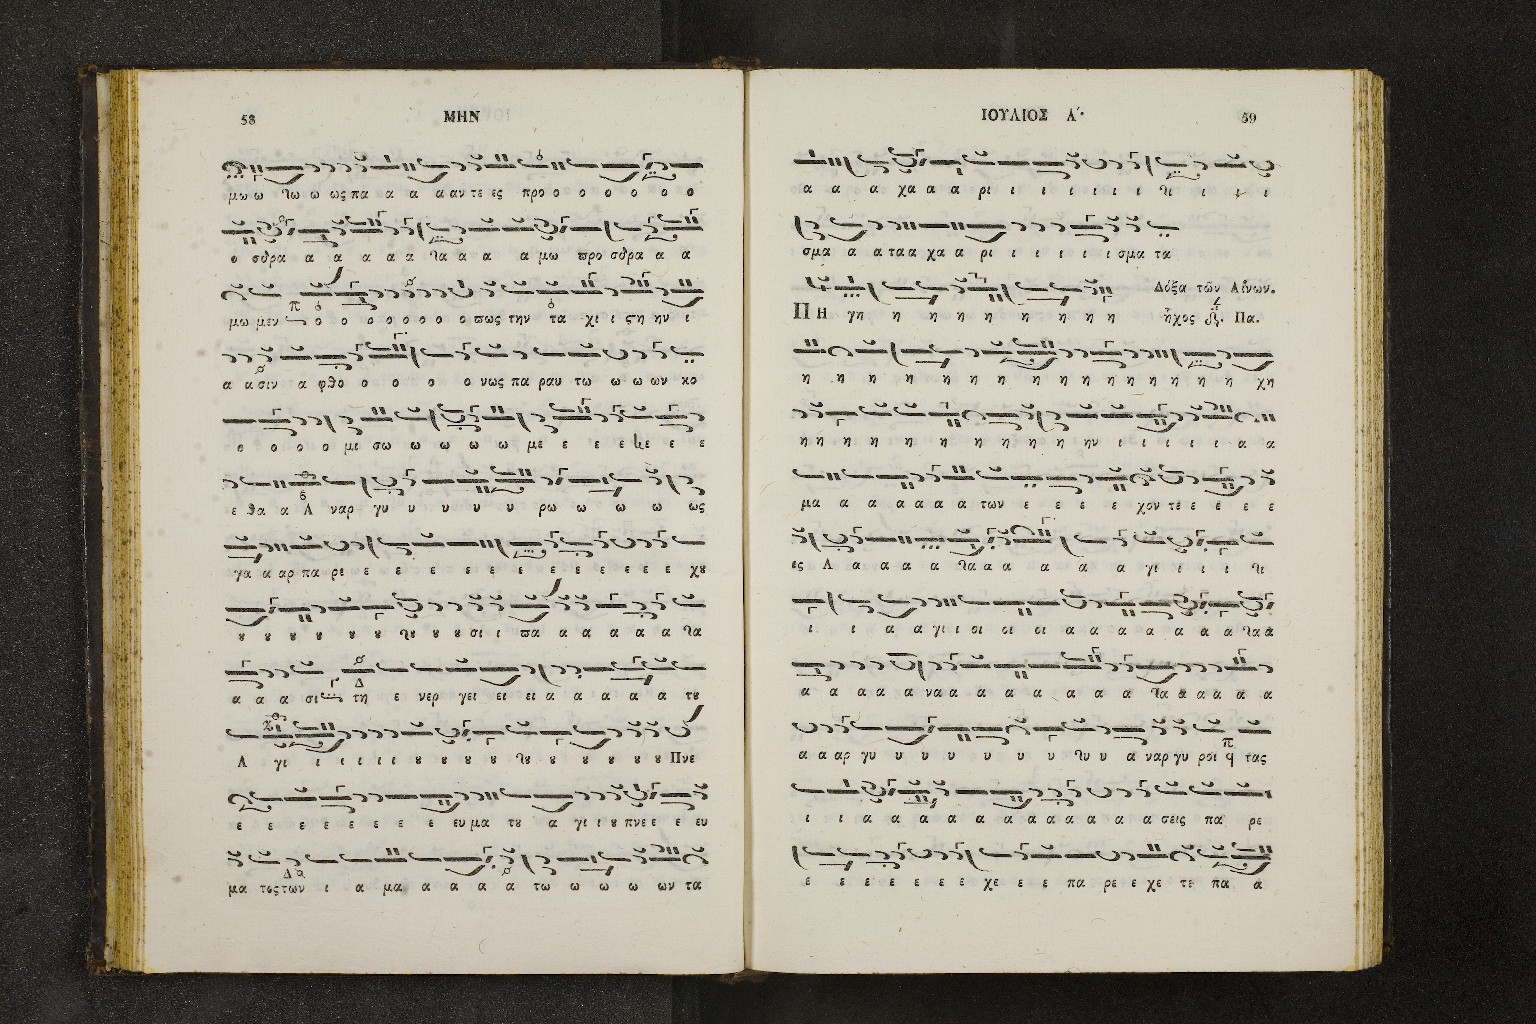 58
ΜΗΝ
μω ω ϡω ω ως πα α α α αν τε ες προ ο ο ο ο ο ο
ο σδρα α α α α α ϡα α α α μω προ σδρα α α
μω μεν ο ο ο ο ο ο ο ο πως την τα χι ι ςη ην ι
α α σιν α φθο ο ο ο ο νως πα ραυ τω ω ω ων κο
ο ο ο ο μι σω ω ω ω ω ω με ε ε ε με ε ε
ε θα α Α ναρ γυ υ υ υ υ ρω ω ω ω ως
γα α αρ πα ρε ε ε ε ε ε ε ε ε ε ε ε χȣ
ȣ ȣ ȣ ȣ ȣ ȣ ϡȣ ȣ ȣ σι ι πα α α α α α ϡα
α α α σι τη ε νερ γει ει ει α α α α α τȣ
Α γι ι ι ι ι ι ȣ ȣ ȣ ȣ ϡȣ ȣ ȣ ȣ ȣ ȣ Πνε
ε ε ε ε ε ε ε ε ευ μα τȣ α γι ι ȣ πνε ε ε ευ
μα τος των ι α μα α α α α τω ω ω ω ων τα
ΙΟΥΛΙΟΣ Α΄.
59
α α α χα α α ρι ι ι ι ι ι ι ϡι ι ι ι
σμα α α τα α χα α ρι ι ι ι ι ι σμα τα
Δόξα τῶν Αἴνων.
ΠΗ γη η η η η η η η η ἦχος Πα.
η η η η η η η η η η η η η η η χη
η η η η η η η η η η η ην ι ι ι ι ι α α
μα α α α α α α των ε ε ε ε χον τε ε ε ε ε
ες Α α α α α ϡα α α α α α α γι ι ι ι ϡι
ι ι α α γι ι οι οι οι α α α α α α α α ϡα α
α α α α α να α α α α α α α α ϡα α α α α α
α α αρ γυ υ υ υ υ υ υ υ ϡυ υ α ναρ γυ ροι τας
ι ι α α α α α α α α α α α α σεις πα ρε
ε ε ε ε ε ε ε χε ε ε πα ρε ε χε τε πα α